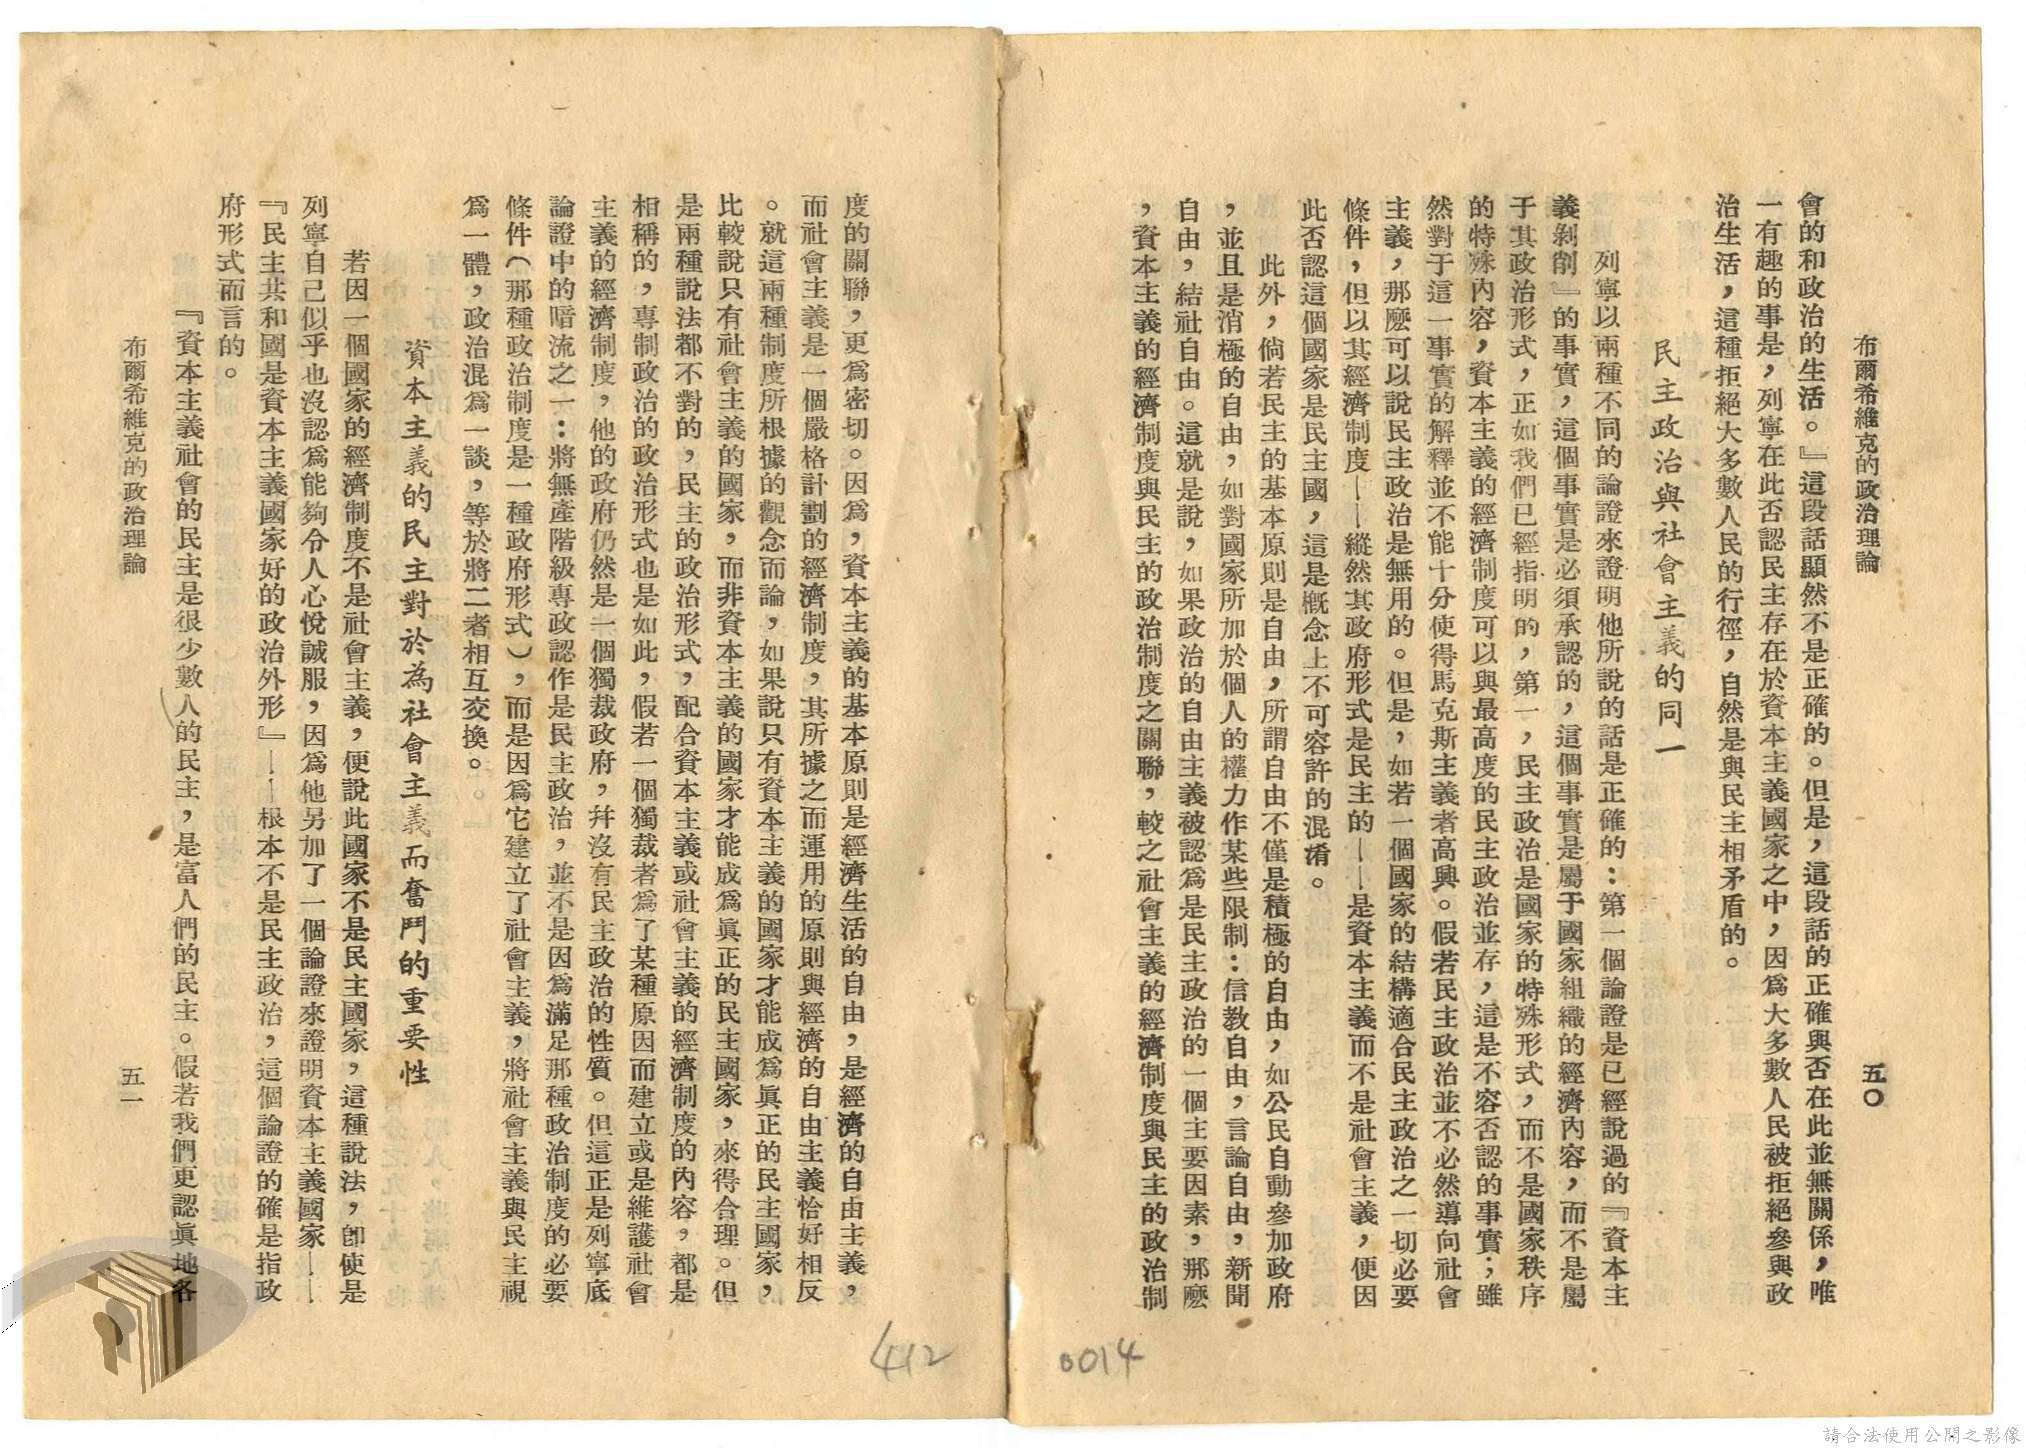 布爾希維克的政治理論
五〇
會的和政治的生活。』這段話顯然不是正確的。但是，這段話的正確與否在此並無關係，唯
一有趣的事是，列寧在此否認民主存在於資本主義國家之中，因爲大多數人民被拒絕參與政
治生活，這種拒絕大多數人民的行徑，自然是與民主相矛盾的。
民主政治與社會主義的同一
列寧以兩種不同的論證來證明他所說的話是正確的：第一個論證是已經說過的『資本主
義剝削』的事實，這個事實是必須承認的，這個事實是屬于國家組織的經濟內容，而不是屬
于其政治形式，正如我們已經指明的，第一，民主政治是國家的特殊形式，而不是國家秩序
的特殊內容，資本主義的經濟制度可以與最高度的民主政治並存，這是不容否認的事實；雖
然對于這一事實的解釋並不能十分使得馬克斯主義者高興。假若民主政治並不必然導向社會
主義，那麼可以說民主政治是無用的。但是，如若一個國家的結構適合民主政治之一切必要
條件，但以其經濟制度——縱然其政府形式是民主的——是資本主義而不是社會主義，便因
此否認這個國家是民主國，這是概念上不可容許的混淆。
此外，倘若民主的基本原則是自由，所謂自由不僅是積極的自由，如公民自動參加政府
，並且是消極的自由，如對國家所加於個人的權力作某些限制：信教自由，言論自由，新聞
自由，結社自由。這就是說，如果政治的自由主義被認爲是民主政治的一個主要因素，那麼
，資本主義的經濟制度與民主的政治制度之關聯，較之社會主義的經濟制度與民主的政治制
0014
度的關聯，更爲密切。因爲，資本主義的基本原則是經濟生活的自由，是經濟的自由主義，
而社會主義是一個嚴格計劃的經濟制度，其所據之而運用的原則與經濟的自由主義恰好相反
。就這兩種制度所根據的觀念而論，如果說只有資本主義的國家才能成爲眞正的民主國家，
比較說只有社會主義的國家，而非資本主義的國家才能成爲眞正的民主國家，來得合理。但
是兩種說法都不對的，民主的政治形式，配合資本主義或社會主義的經濟制度的內容，都是
相稱的，專制政治的政治形式也是如此，假若一個獨裁者爲了某種原因而建立或是維護社會
主義的經濟制度，他的政府仍然是一個獨裁政府，幷沒有民主政治的性質。但這正是列寧底
論證中的暗流之一：將無產階級專政認作是民主政治，並不是因爲滿足那種政治制度的必要
條件（那種政治制度是一種政府形式），而是因爲它建立了社會主義，將社會主義與民主視
爲一體，政治混爲一談，等於將二者相互交換。
資本主義的民主對於為社會主義而奮鬥的重要性
若因一個國家的經濟制度不是社會主義，便說此國家不是民主國家，這種說法，卽使是
列寧自己似乎也沒認爲能夠令人心悅誠服，因爲他另加了一個論證來證明資本主義國家——
『民主共和國是資本主義國家好的政治外形』——根本不是民主政治，這個論證的確是指政
府形式而言的。
『資本主義社會的民主是很少數人的民主，是富人們的民主。假若我們更認眞地各
布爾希維克的政治理論
五一
412
請合法使用公開之影像